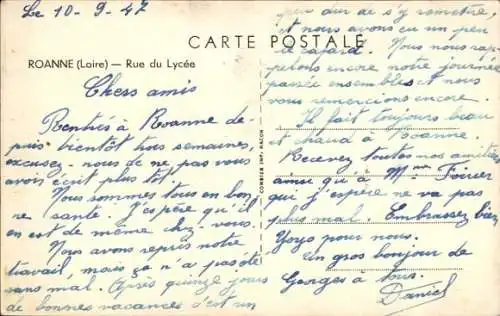 Le 10-9-47
CARTE POSTALE
ROANNE (Loire) — Rue du Lycée
Chers amis
Rentrés à Roanne de-
puis bientôt trois semaines,
excusez-nous de ne pas vous
avoir écrit plus tôt.
Nous sommes tous en bon-
ne santé. J'espère qu'il
en est de même chez-vous.
Nous avons repris notre
travail, mais ça n'a pas été
sans mal. Après quinze jours
de bonnes vacances c'est un
peu dur de s'y remettre,
et nous avons eu un peu
le cafard. Nous nous rap-
pelons encore notre journée
passée ensembles et nous
vous remercions encore.
Il fait toujours beau
et chaud à Roanne.
Recevez toutes mes amitiés
ainsi qu'à
qui, j'espère ne va pas
plus mal. Embrassez bien
Yoyo pour nous.
Un gros bonjour de
Georges à tous.
Daniel
COMBIER IMP. MACON